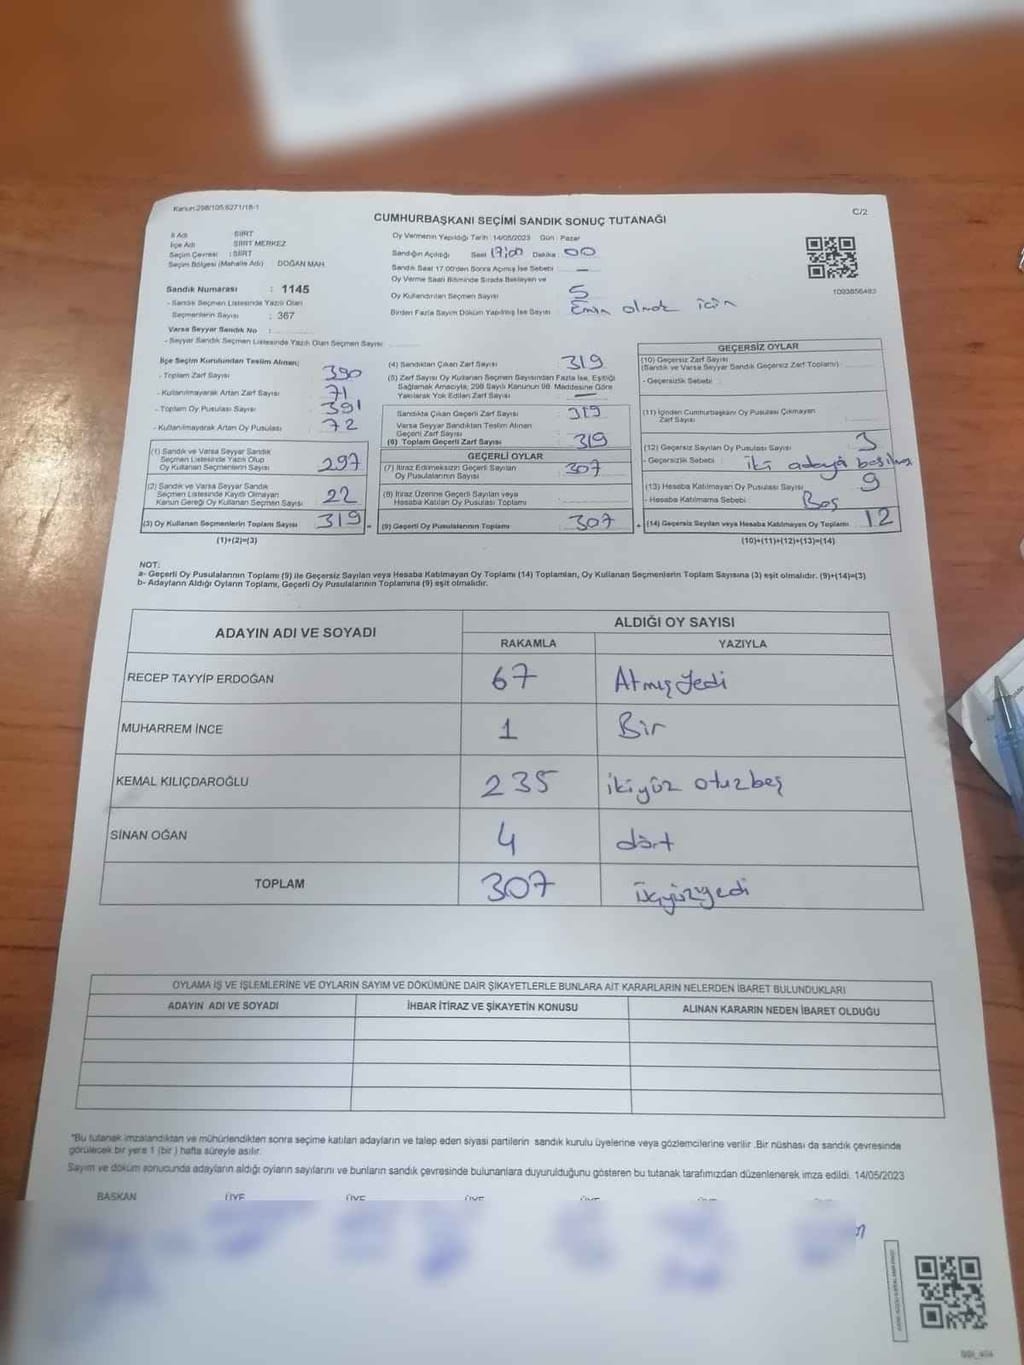 Kanun 298/105 6271/18-1
CUMHURBAŞKANI SEÇİMİ SANDIK SONUÇ TUTANAĞI
C/2
İl Adı : SİİRT
İlçe Adı : SİİRT MERKEZ
Seçim Çevresi : SİİRT
Seçim Bölgesi (Mahalle Adı) : DOĞAN MAH.
Sandık Numarası : 1145
- Sandık Seçmen Listesinde Yazılı Olan
Seçmenlerin Sayısı : 367
Varsa Seyyar Sandık No :
- Seyyar Sandık Seçmen Listesinde Yazılı Olan Seçmen Sayısı
Oy Vermenin Yapıldığı Tarih : 14/05/2023 Gün : Pazar
Sandığın Açıldığı Saat 17:00 Dakika : 00
Sandık Saat 17.00'den Sonra Açılmış İse Sebebi —
Oy Verme Saati Bitiminde Sırada Bekleyen ve
Oy Kullandırılan Seçmen Sayısı 5
Birden Fazla Sayım Döküm Yapılmış İse Sayısı Emin olmak için
1093856493
İlçe Seçim Kurulundan Teslim Alınan;
- Toplam Zarf Sayısı 390
- Kullanılmayarak Artan Zarf Sayısı 71
- Toplam Oy Pusulası Sayısı 391
- Kullanılmayarak Artan Oy Pusulası 72
(1) Sandık ve Varsa Seyyar Sandık
Seçmen Listesinde Yazılı Olup
Oy Kullanan Seçmenlerin Sayısı 297
(2) Sandık ve Varsa Seyyar Sandık
Seçmen Listesinde Kayıtlı Olmayan
Kanun Gereği Oy Kullanan Seçmen Sayısı 22
(3) Oy Kullanan Seçmenlerin Toplam Sayısı 319
(1)+(2)=(3)
(4) Sandıktan Çıkan Zarf Sayısı 319
(5) Zarf Sayısı Oy Kullanan Seçmen Sayısından Fazla İse, Eşitliği
Sağlamak Amacıyla, 298 Sayılı Kanunun 98. Maddesine Göre
Yakılarak Yok Edilen Zarf Sayısı —
Sandıkta Çıkan Geçerli Zarf Sayısı 319
Varsa Seyyar Sandıktan Teslim Alınan
Geçerli Zarf Sayısı
(6) Toplam Geçerli Zarf Sayısı 319
GEÇERLİ OYLAR
(7) İtiraz Edilmeksizin Geçerli Sayılan
Oy Pusulalarının Toplamı 307
(8) İtiraz Üzerine Geçerli Sayılan veya
Hesaba Katılan Oy Pusulası Toplamı
= (9) Geçerli Oy Pusulalarının Toplamı 307
GEÇERSİZ OYLAR
(10) Geçersiz Zarf Sayısı
(Sandık ve Varsa Seyyar Sandık Geçersiz Zarf Toplamı)
- Geçersizlik Sebebi
(11) İçinden Cumhurbaşkanı Oy Pusulası Çıkmayan
Zarf Sayısı
(12) Geçersiz Sayılan Oy Pusulası Sayısı 3
- Geçersizlik Sebebi : iki adaya basılmış
(13) Hesaba Katılmayan Oy Pusulası Sayısı 9
- Hesaba Katılmama Sebebi : Boş
+ (14) Geçersiz Sayılan veya Hesaba Katılmayan Oy Toplamı 12
(10)+(11)+(12)+(13)=(14)
NOT:
a- Geçerli Oy Pusulalarının Toplamı (9) ile Geçersiz Sayılan veya Hesaba Katılmayan Oy Toplamı (14) Toplamları, Oy Kullanan Seçmenlerin Toplam Sayısına (3) eşit olmalıdır. (9)+(14)=(3)
b- Adayların Aldığı Oyların Toplamı, Geçerli Oy Pusulalarının Toplamına (9) eşit olmalıdır.
ADAYIN ADI VE SOYADI
ALDIĞI OY SAYISI
RAKAMLA YAZIYLA
RECEP TAYYİP ERDOĞAN 67 Atmış yedi
MUHARREM İNCE 1 Bir
KEMAL KILIÇDAROĞLU 235 ikiyüz otuzbeş
SİNAN OĞAN 4 dört
TOPLAM 307 üçyüzyedi
OYLAMA İŞ VE İŞLEMLERİNE VE OYLARIN SAYIM VE DÖKÜMÜNE DAİR ŞİKAYETLERLE BUNLARA AİT KARARLARIN NELERDEN İBARET BULUNDUKLARI
ADAYIN ADI VE SOYADI İHBAR İTİRAZ VE ŞİKAYETİN KONUSU ALINAN KARARIN NEDEN İBARET OLDUĞU
*Bu tutanak imzalandıktan ve mühürlendikten sonra seçime katılan adayların ve talep eden siyasi partilerin sandık kurulu üyelerine veya gözlemcilerine verilir. Bir nüshası da sandık çevresinde
görülecek bir yere 1 (bir) hafta süreyle asılır.
Sayım ve döküm sonucunda adayların aldığı oyların sayılarını ve bunların sandık çevresinde bulunanlara duyurulduğunu gösteren bu tutanak tarafımızdan düzenlenerek imza edildi. 14/05/2023
BAŞKAN ÜYE ÜYE ÜYE ÜYE